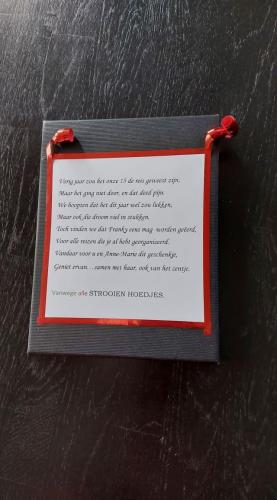 Vorig jaar zou het onze 15 de reis geweest zijn,
Maar het ging niet door, en dat deed pijn.
We hoopten dat het dit jaar wel zou lukken,
Maar ook die droom viel in stukken.
Toch vinden we dat Franky eens mag worden geëerd,
Voor alle reizen die je al hebt georganiseerd.
Vandaar voor u en Anne-Marie dit geschenkje,
Geniet ervan...samen met haar, ook van het zentje.
Vanwege alle STROOIEN HOEDJES.